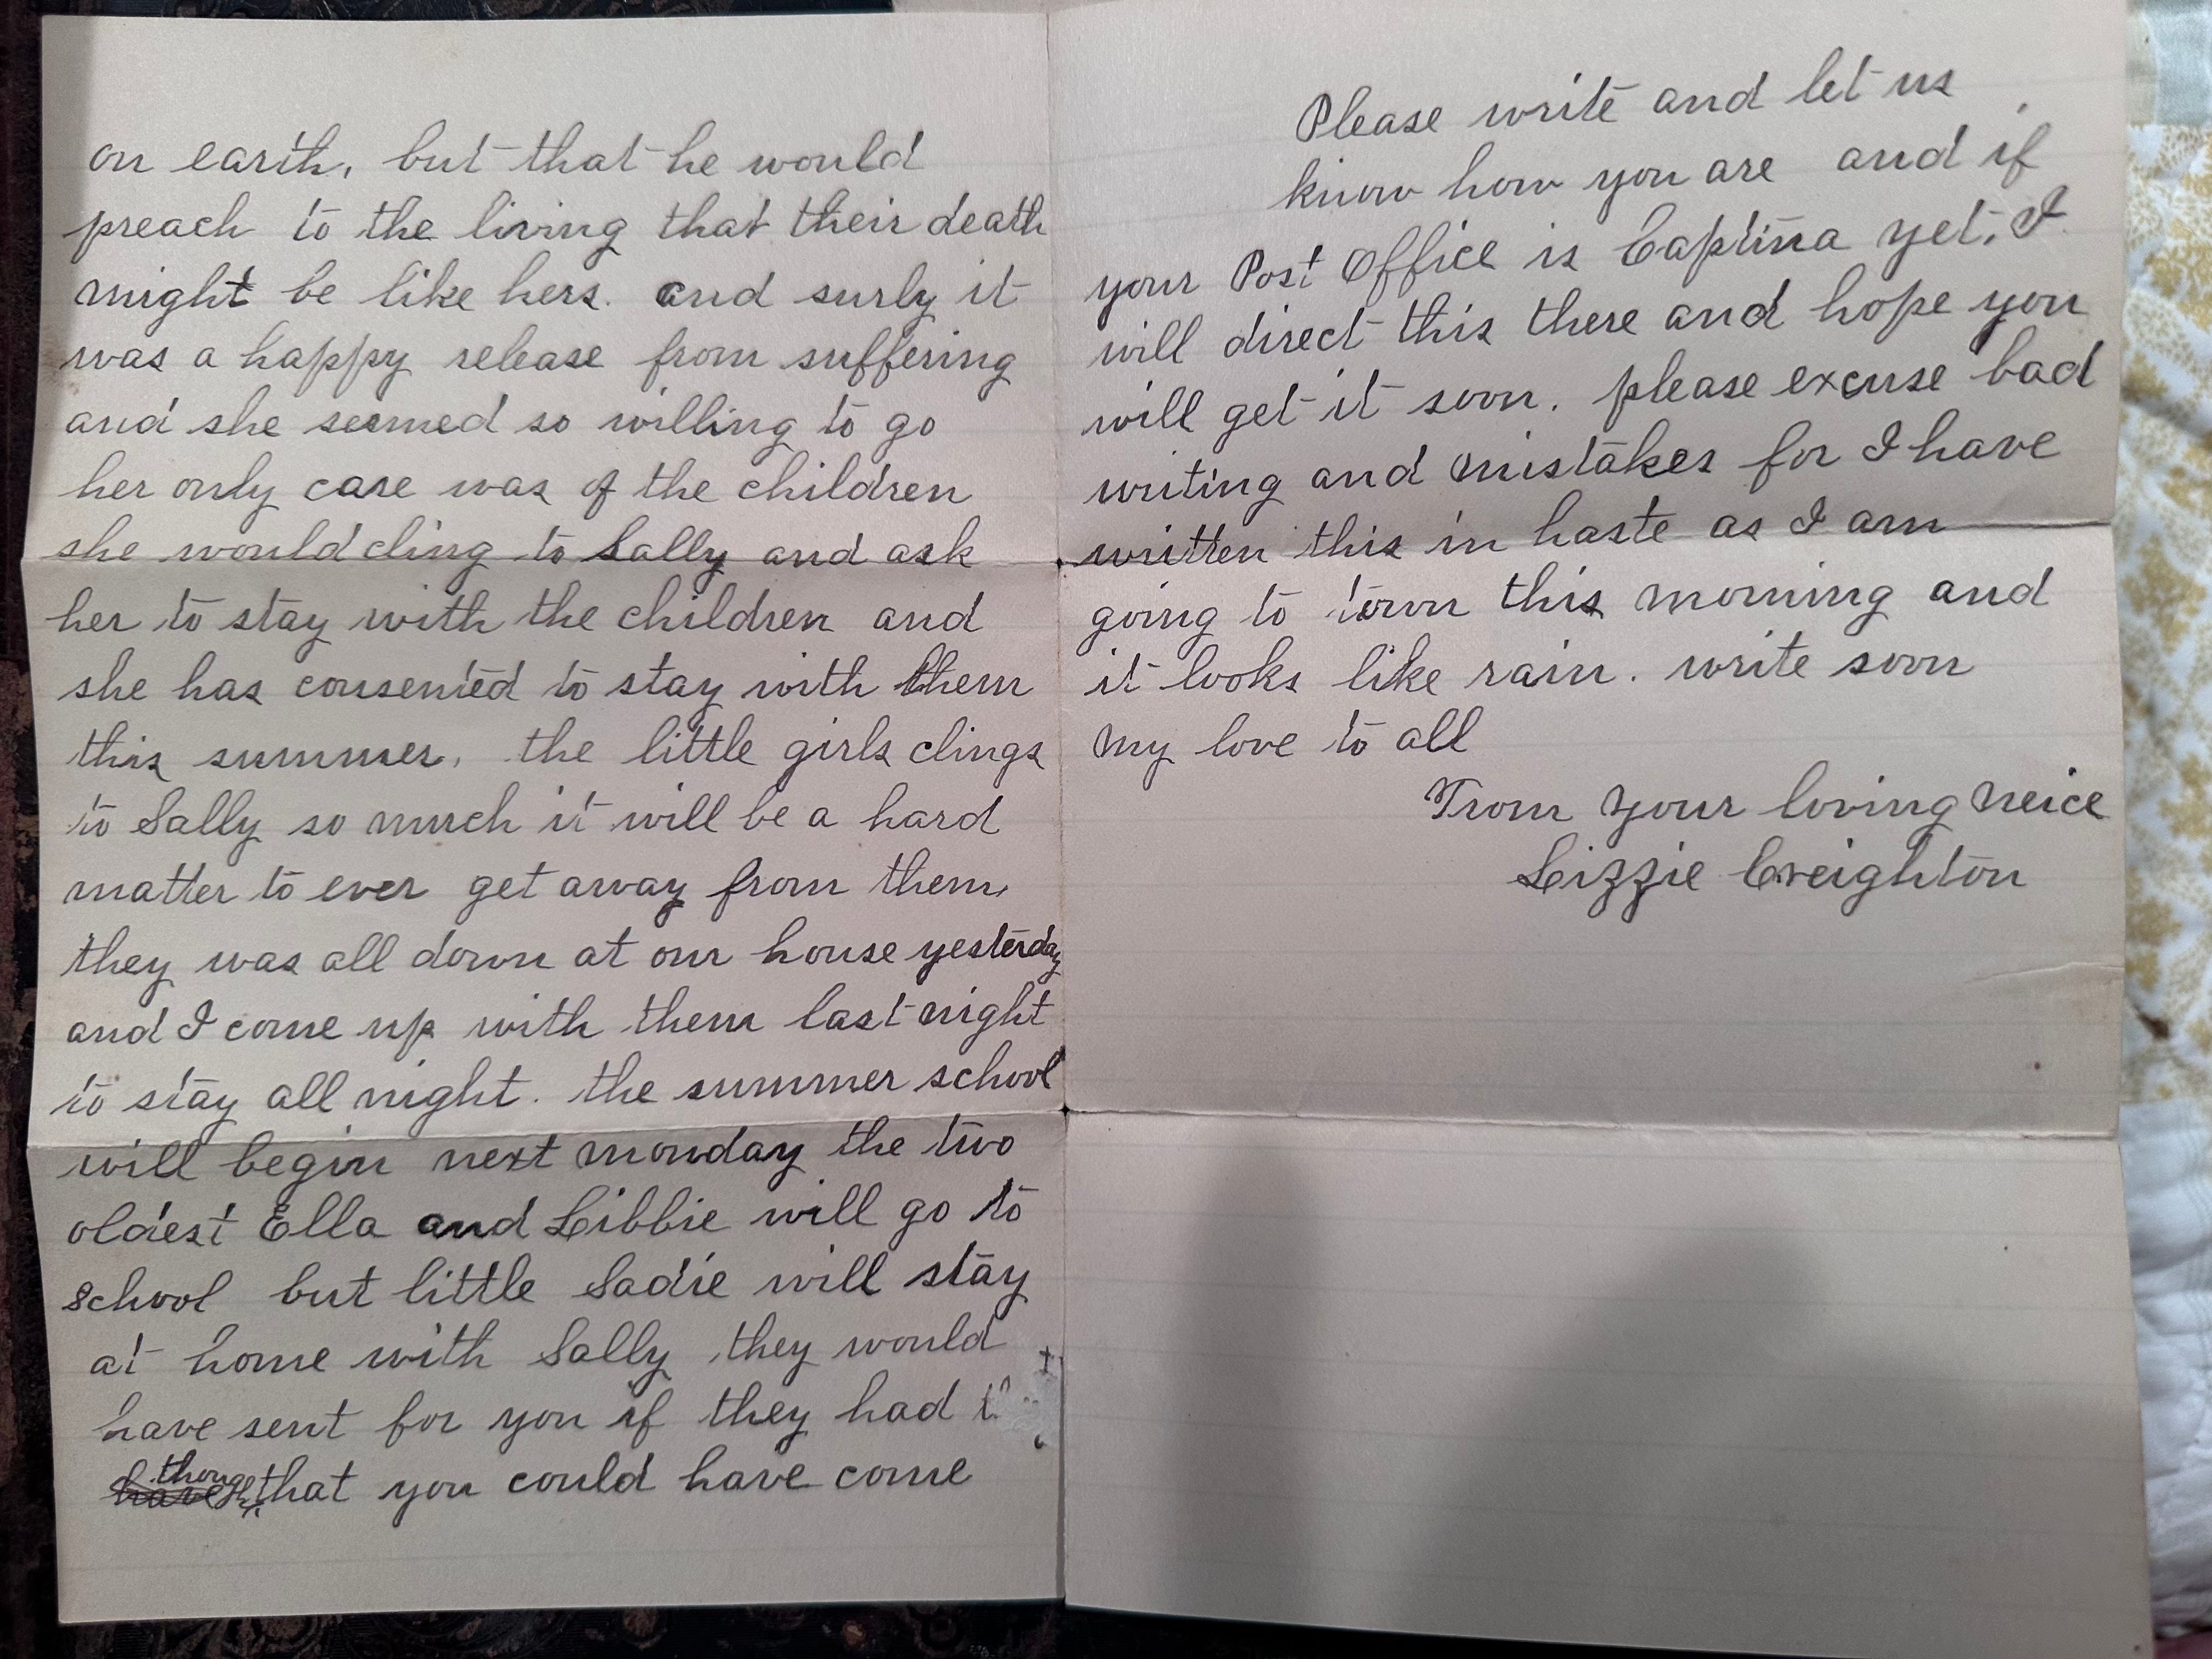 on earth, but that he would
preach to the living that their death
might be like hers. and surly it
was a happy release from suffering
and she seemed so willing to go
her only care was of the children
she would cling to Sally and ask
her to stay with the children and
she has consented to stay with them
this summer, the little girls clings
to Sally so much it will be a hard
matter to ever get away from them,
they was all down at our house yesterday
and I come up with them last night
to stay all night. the summer school
will begin next monday the two
oldest Ella and Libbie will go to
school but little Sadie will stay
at home with Sally, they would
have sent for you if they had
thought
have that you could have come
Please write and let us
know how you are and if
your Post Office is Captina yet, I
will direct this there and hope you
will get it soon. please excuse bad
writing and mistakes for I have
written this in haste as I am
going to town this morning and
it looks like rain. write soon
my love to all
From your loving neice
Lizzie Creighton